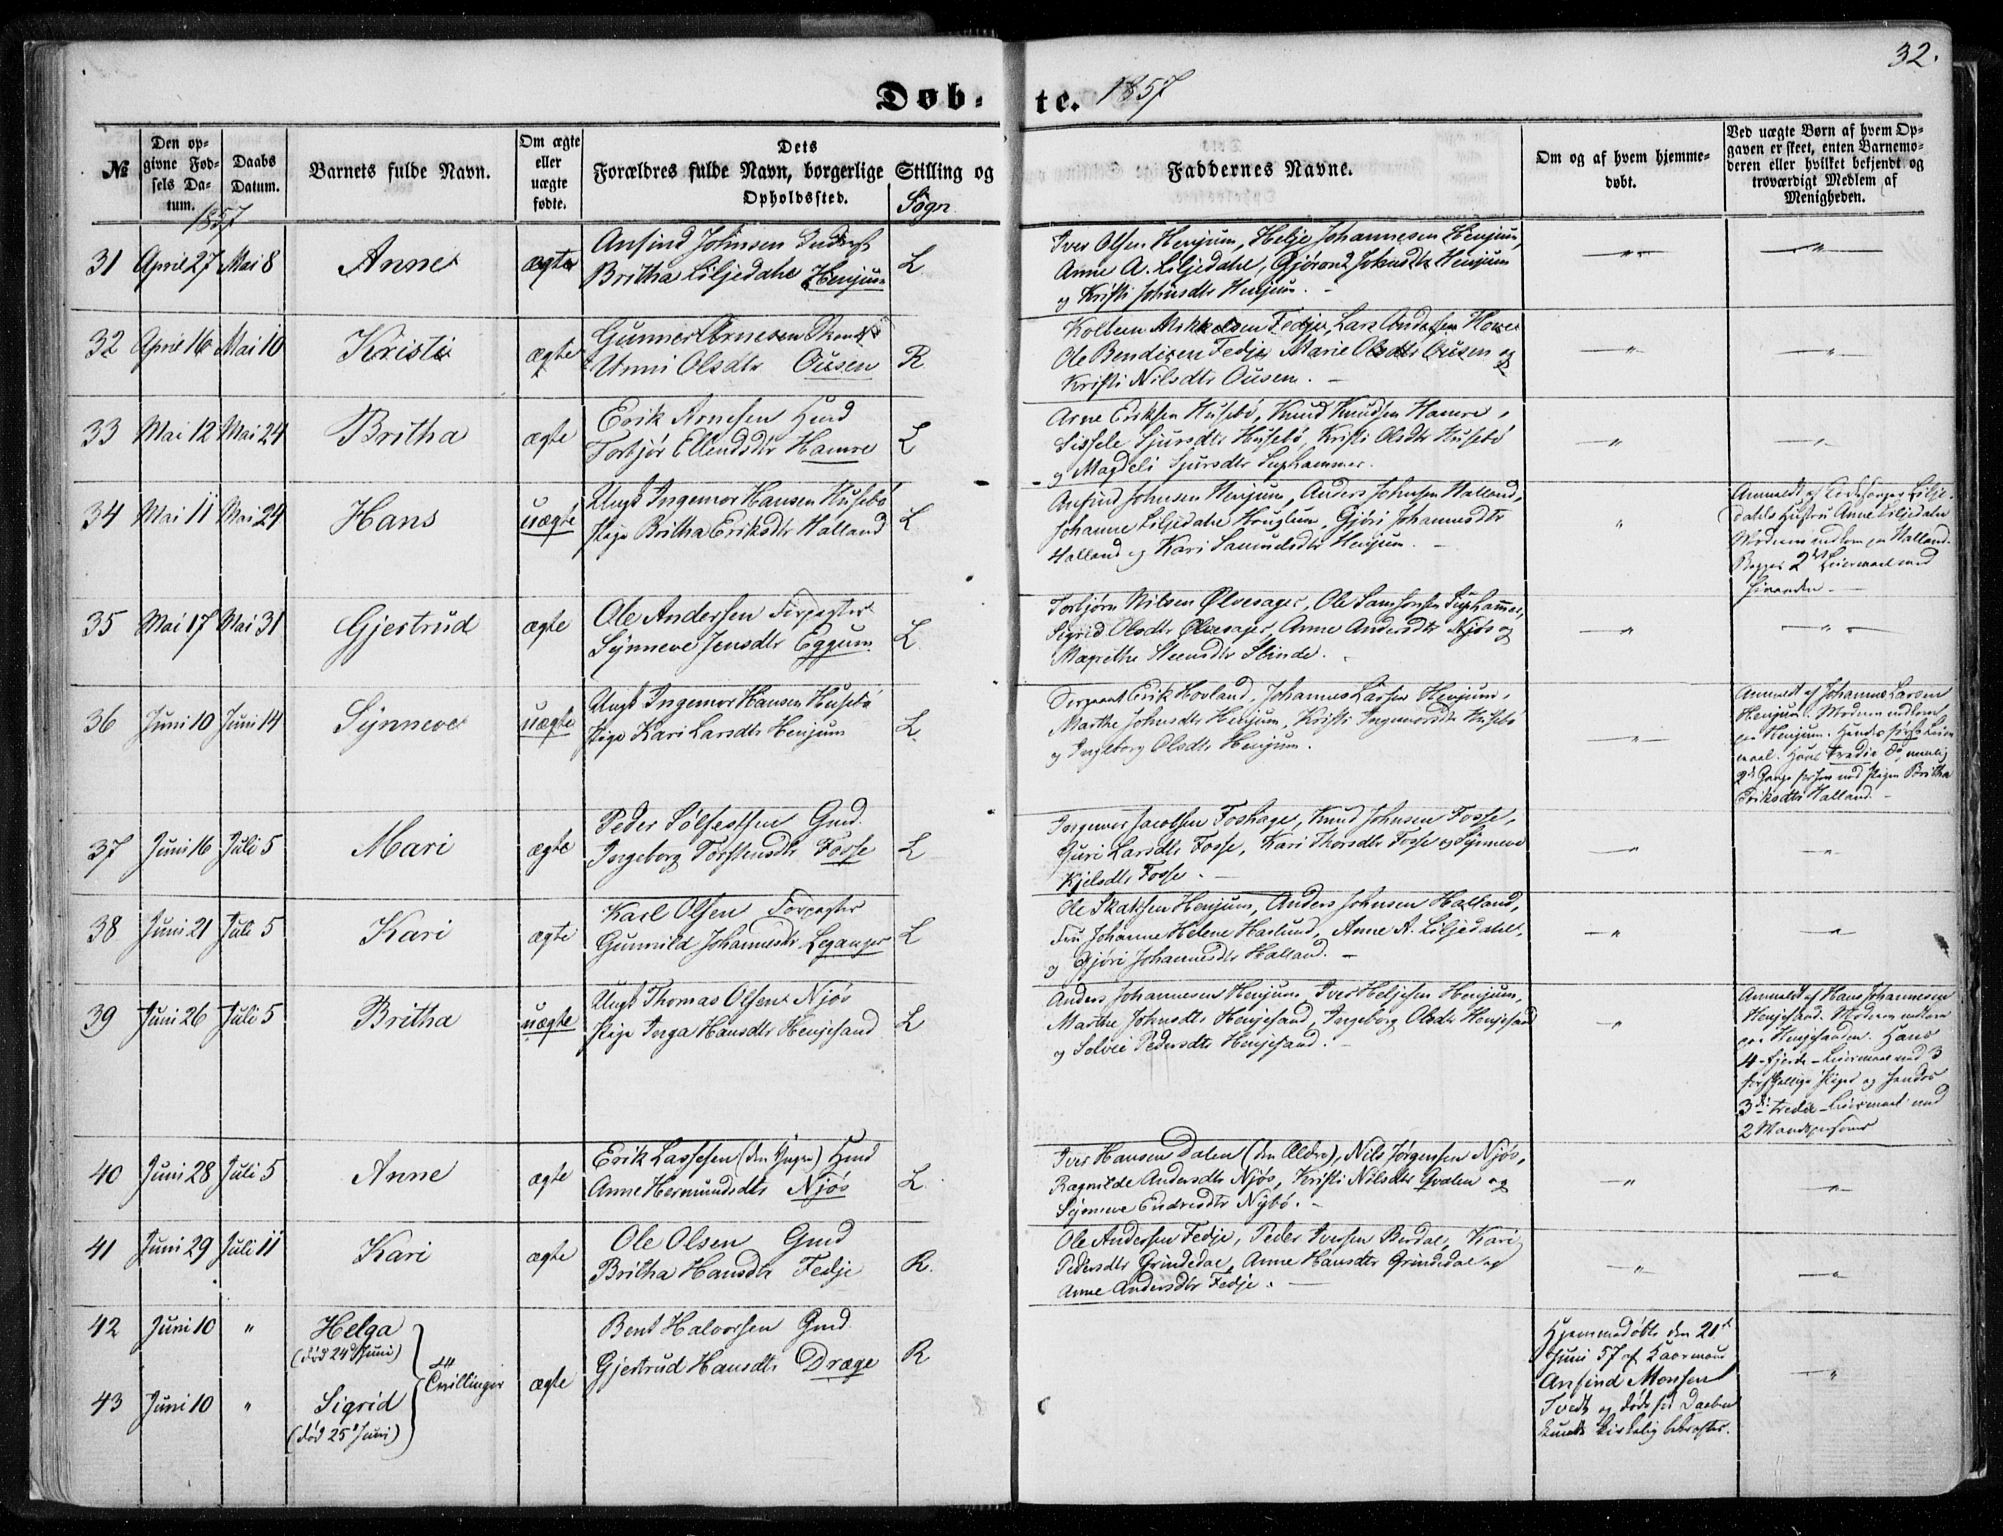 32.
Døb- te. 1857
№ | Den opgivne Fødsels Datum. | Daabs Datum. | Barnets fulde Navn. | Om ægte eller uægte fødte. | Dets Forældres fulde Navn, borgerlige Stilling og Opholdssted. | Sogn | Faddernes Navne. | Om og af hvem hjemmedøbt. | Ved uægte Børn af hvem Opgaven er skeet, enten Barnemoderen eller hvilket bekjendt og troværdigt Medlem af Menigheden.
1857
31 April 27 Mai 8 Anne ægte
Anfind Johnsen
Britha Liljedahl Henjum L
Iver Olsen Henjum, Helje Johannesen Henjum,
Anne A. Liljedahl, Gjørond Johnsdtr Henjum
og Kristi Johnsdtr Henjum. -
32 April 16 Mai 10 Kristi ægte
Gunner Arnesen
Unni Olsdtr Ousen R
Kolbein Mikkelsen Fedje, Lars Andersen
Ole Bendixen Fedje Marie Olsdtr Ousen og
Kristi Nilsdtr Ousen. -
33 Mai 12 Mai 24 Britha ægte
Erik Arnesen Husd
Torbjør Ellendsdtr Hamre L
Arne Eriksen Husebø, Knud Knudsen Hamre,
Sissele Sjursdtr Husebø, Kristi Olsdtr Husebø
og Magdeli Sjursdtr Suphammer.
34 Mai 11 Mai 24 Hans uægte
Ungk Ingemor Hansen Husebø
Pige Britha Eriksdtr Halland L
Anfind Johnsen Henjum, Anders Johnsen Halland,
Johanne Liljedahl Houglum, Gjøri Johannesdtr
Halland og Kari Samuelsdtr Henjum. -
Anmeldt af Liljedahls Hustru Anne Liljedahl
Moderen indlem. pa Halland.
Begges 2det Leiermaal med
hinanden. -
35 Mai 17 Mai 31 Gjertrud ægte
Ole Andersen Forpagter
Synneve Jensdtr Eggum L.
Torbjørn Nilsen Ølvesager, Ole Samsonsen Suphammer,
Sigrid Olsdtr Ølvesager, Anne Andersdtr Njøs og
Magrethe Steensdtr Slinde.
36 Juni 10 Juni 14 Synneve uægte
Ungk Ingemor Hansen Husebø
Pige Kari Larsdtr Henjum L.
Sergeant Erik Hovland, Johannes Larsen Henjum,
Marthe Johnsdtr Henjum, Kristi Ingemorsdtr Husebø
og Ingeborg Olsdtr Henjum.
Anmeldt af Johannes Larsen
Henjum. Moderen indlem.
paa Henjum. Hendes første Leiermaal. Hans tredie Do, nemlig
2de Gange forhen med Pigen Britha
Eriksdtr Halland. -
37 Juni 16 Juli 5 Mari ægte
Peder Sølfestsen Gmd.
Ingeborg Torstensdtr Fosse L
Ingemor Jacobsen Foshage, Knud Johnsen Fosse,
Guri Larsdtr Fosse, Kari Thorsdtr Fosse og Synneve
Kjelsdtr Fosse. -
38 Juni 21 Juli 5 Kari ægte
Karl Olsen Forpagter
Gunnild Johannesdtr Leganger L
Ole Skaksen Henjum, Anders Johnsen Halland,
Fru Johanne Helene Haslund, Anne A. Liljedahl,
og Gjøri Johannesdtr Halland. -
39 Juni 26 Juli 5 Britha uægte
Ungk Thomas Olsen Njøs
Pige Inga Hansdtr Henjesand L
Anders Johannesen Henjum, Iver Heljesen Henjum,
Marthe Johnsdtr Henjesand, Ingeborg Olsdtr Henjesand
og Solvei Pedersdtr Henjesand. -
Anmeldt af Hans Johannesen
Henjesand. Moderen indlem
paa Henjesanden. Hans
4 - fjerde - Leiermaal med 3
forskjellige Piger og hendes
3die tredie - Leiermaal med
2 Mandspersoner
40 Juni 28 Juli 5 Anne ægte
Erik Lassesen (den Yngre) Husd
Anne Hermundsdtr Njøs L
Iver Hansen Dalen (den Ældre), Nils Jørgensen Njøs,
Ragnilde Andersdtr Njøs, Kristi Nilsdtr Qvalen og
Synneve Endresdtr Nybø. -
41 Juni 29 Juli 11 Kari ægte
Ole Olsen Gmd
Britha Hansdtr Fedje R.
Ole Andersen Fedje, Peder Iversen Berdal, Kari
Pedersdtr Grindedal, Anne Hansdtr Grindedal og
Anne Andersdtr Fedje. -
42 Juni 10 " Helga
(død 24de Juni)
43 Juni 10 " Sigrid
(død 25de Juni)
Tvillinger ægte
Bent Halvorsen Gmd
Gjertrud Hansdtr Dræge R
Hjemmedøbte den 21de
Juni 57 af
Anfind Monsen
Tvedt og døde før Daaben
kunde kirkelig bekræftes.